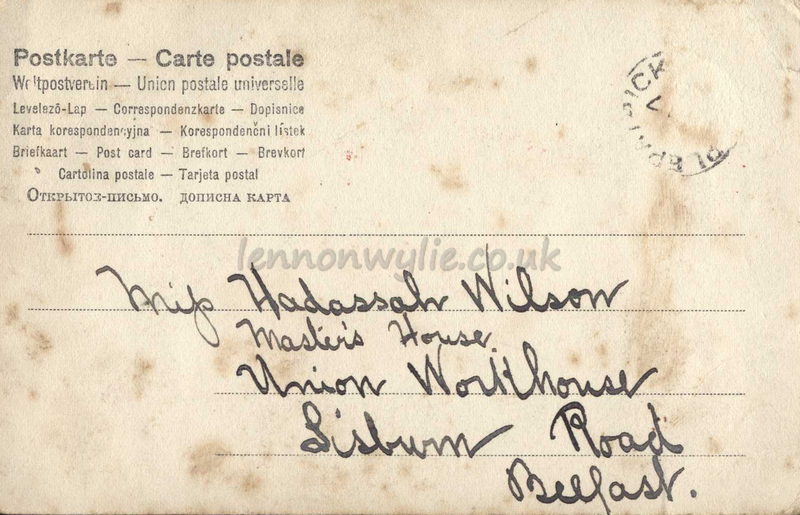 Postkarte — Carte postale
Weltpostverein — Union postale universelle
Levelező-Lap — Correspondenzkarte — Dopisnice
Karta korespondencyjna — Korespondenční lístek
Briefkaart — Post card — Brefkort — Brevkort
Cartolina postale — Tarjeta postal
Открытоз-письмо. дописна карта
lennonwylie.co.uk
Miss Hadassah Wilson
Master's House.
Union Workhouse
Lisburn Road
Belfast.